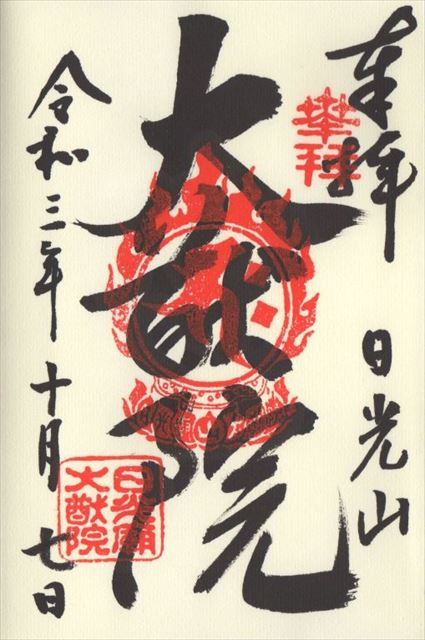 奉拝
奉拝
日光山
大猷院
令和三年十月七日
日光廟
大猷院